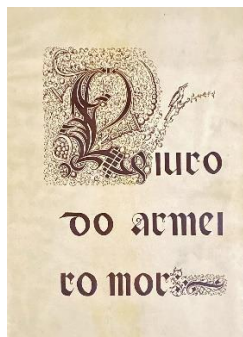 Liuro
do armei
ro mor